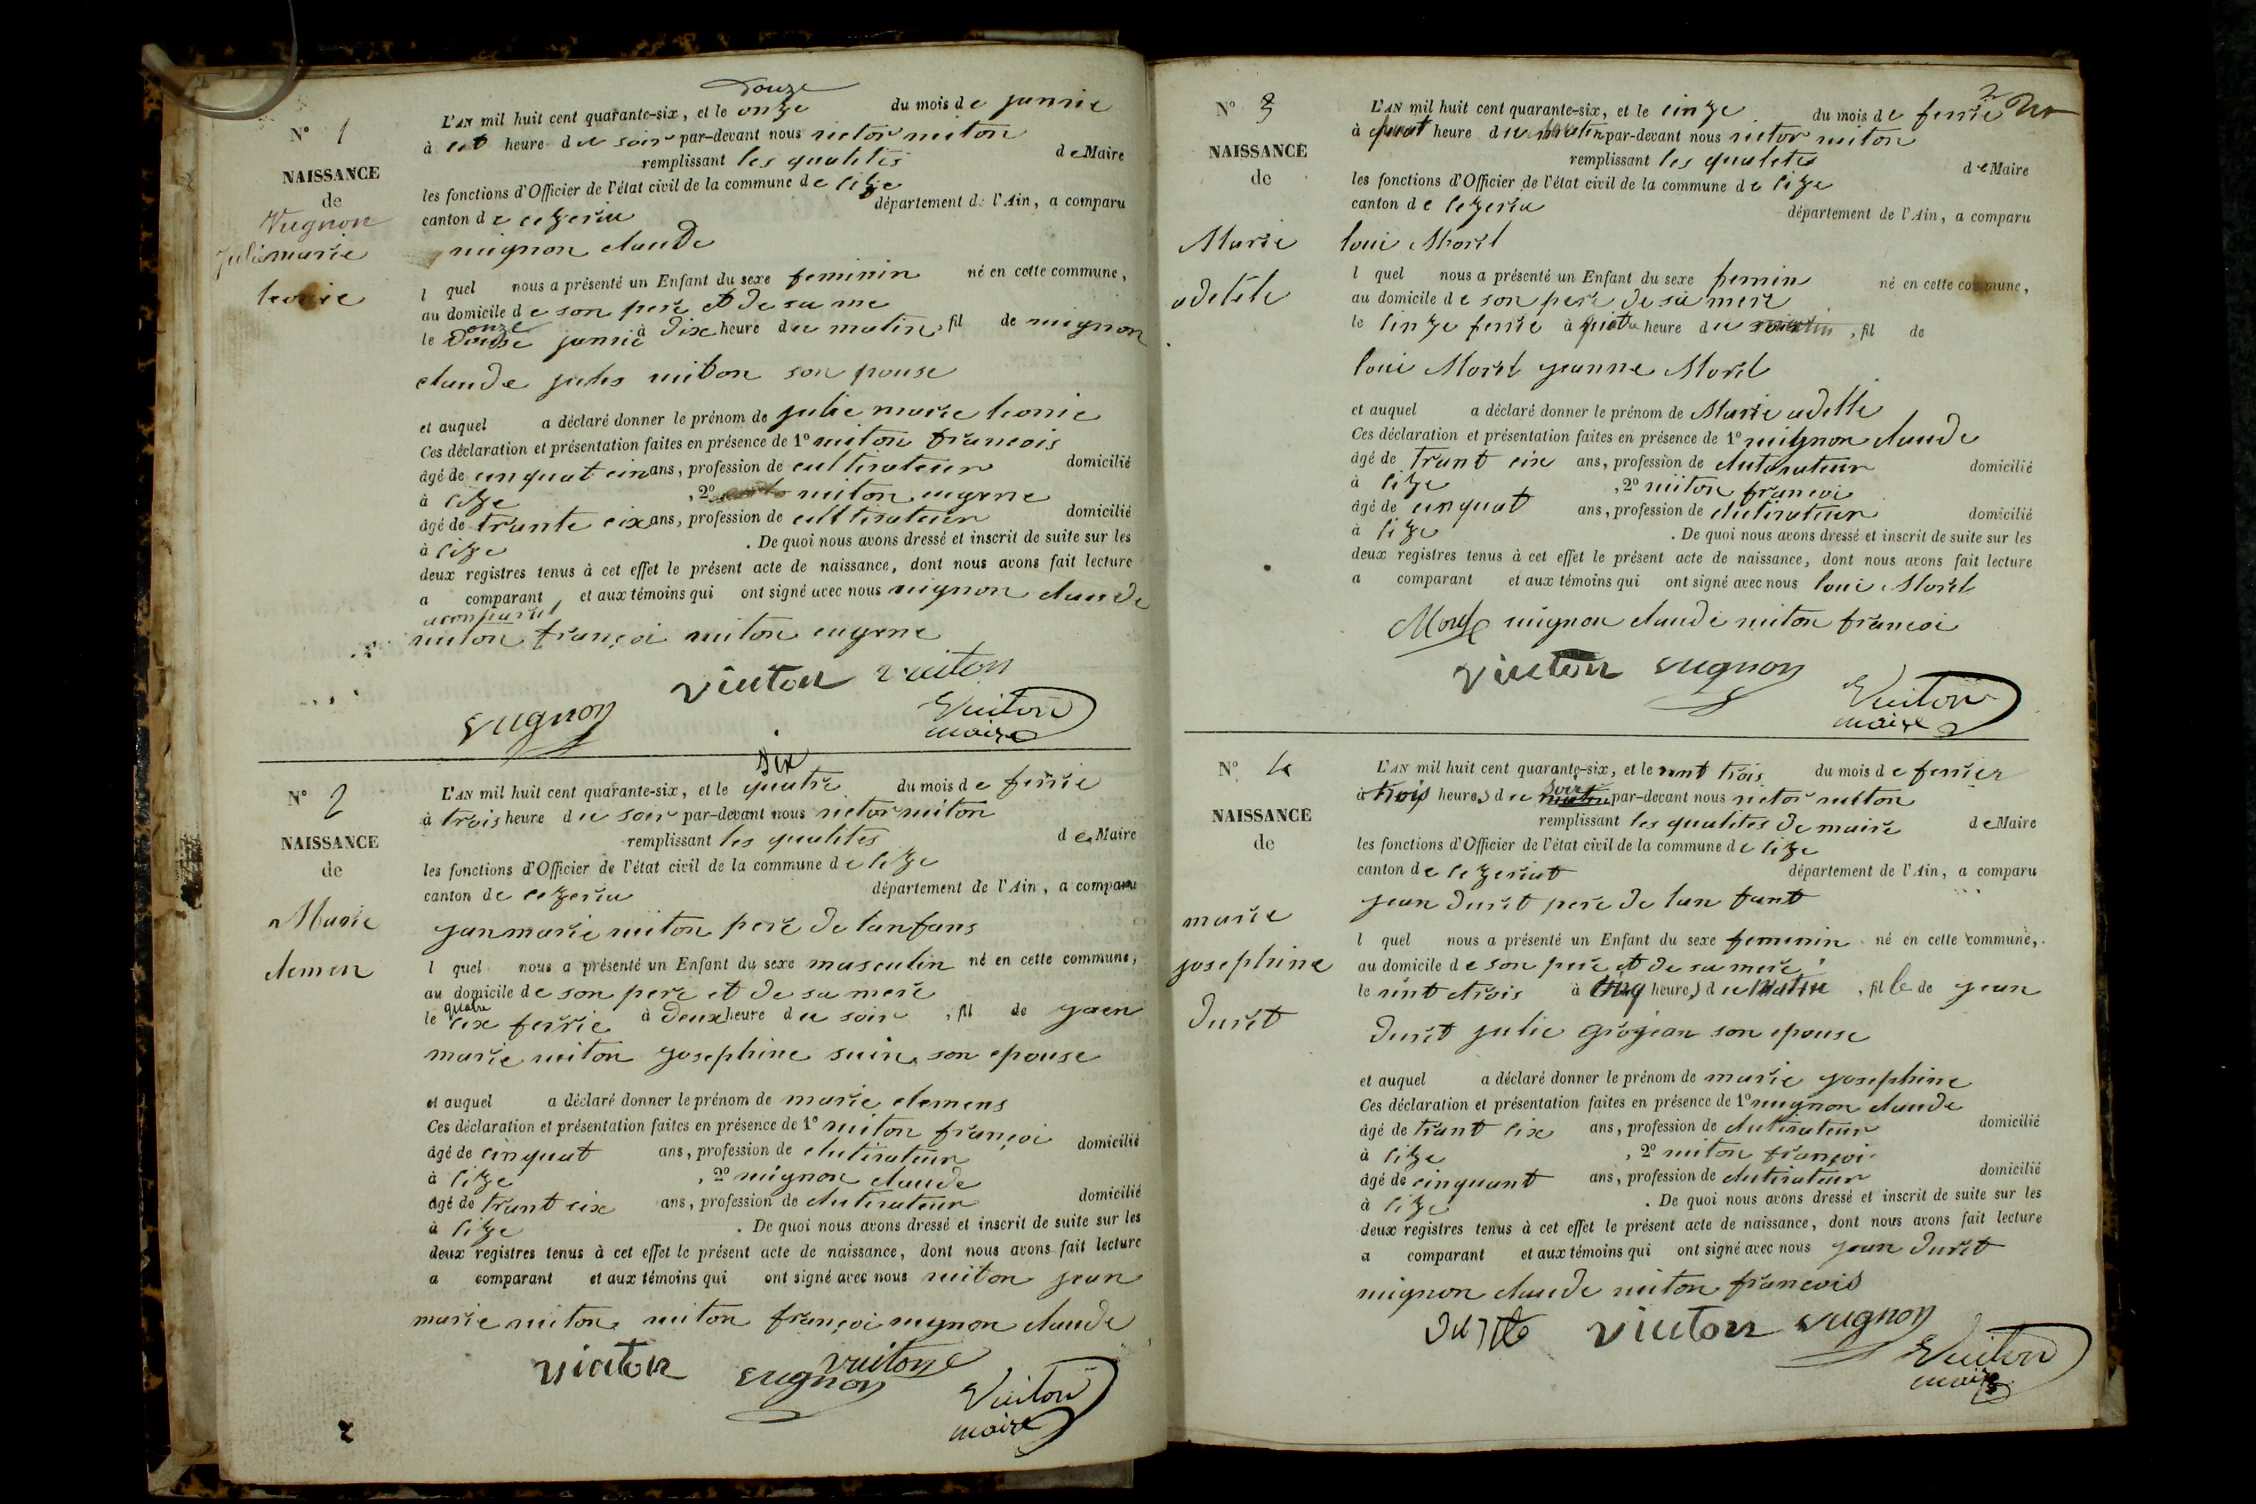 douze
N° 1
NAISSANCE
de
Vugnon
julie marie
leonie
L'AN mil huit cent quarante-six, et le onze du mois de janvie
à set heure du soir par-devant nous victor viiton
remplissant les qualités de Maire
les fonctions d'Officier de l'état civil de la commune de lize
canton de cezeriu département de l'Ain, a comparu
vugnon claude
l quel nous a présenté un Enfant du sexe feminin né en cette commune,
au domicile de son pere et de sa me
onze
le douse janvie à dix heure du matin, fil de vugnon
claude jules viiton son pouse
et auquel a déclaré donner le prénom de julie marie leonie
Ces déclaration et présentation faites en présence de 1° viiton francois
âgé de cinquat cin ans, profession de cultivateur domicilié
à lize, 2° viiton eugene
âgé de trante cix ans, profession de cultivateur domicilié
à lize. De quoi nous avons dressé et inscrit de suite sur les
deux registres tenus à cet effet le présent acte de naissance, dont nous avons fait lecture
a comparant et aux témoins qui ont signé avec nous vugnon claude
viiton françoi viiton eugene
viuton vuiton
vugnon
Vuiton
maire
N° 2
NAISSANCE
de
Marie
clemen
six
L'AN mil huit cent quarante-six, et le quatre du mois de fevrie
à trois heure du soir par-devant nous victor viiton
remplissant les qualités de Maire
les fonctions d'Officier de l'état civil de la commune de lize
canton de cezeriu département de l'Ain, a comparu
jan marie viiton pere de lanfans
l quel nous a présenté un Enfant du sexe masculin né en cette commune,
au domicile de son pere et de sa mere
quatre
le cix fevrie à deux heure du soir, fil de jaen
marie viiton josephine suin son epouse
et auquel a déclaré donner le prénom de marie clemens
Ces déclaration et présentation faites en présence de 1° viiton françoi
âgé de cinquat ans, profession de clutivateur domicilié
à lize, 2° vugnon claude
âgé de trant cix ans, profession de clutivateur domicilié
à lize. De quoi nous avons dressé et inscrit de suite sur les
deux registres tenus à cet effet le présent acte de naissance, dont nous avons fait lecture
a comparant et aux témoins qui ont signé avec nous viiton jean
marie viiton viiton françoi vugnon claude
viuton vugnon vuiton
Vuiton
maire
2
N° 3
NAISSANCE
de
Marie
adelele
L'AN mil huit cent quarante-six, et le cinze du mois de fevrie
à quat heure du matin par-devant nous victor viiton
remplissant les qualetes de Maire
les fonctions d'Officier de l'état civil de la commune de lize
canton de cezeriu département de l'Ain, a comparu
loui Morel
l quel nous a présenté un Enfant du sexe femin né en cette commune,
au domicile de son pere de sa mere
le cinze fevrie à quatre heure du matin, fil de
loui Morel jeanne Morel
et auquel a déclaré donner le prénom de Marie adelle
Ces déclaration et présentation faites en présence de 1° vugnon claude
âgé de trant cix ans, profession de clutivateur domicilié
à lize, 2° viiton francoi
âgé de cinquat ans, profession de clutivateur domicilié
à lize. De quoi nous avons dressé et inscrit de suite sur les
deux registres tenus à cet effet le présent acte de naissance, dont nous avons fait lecture
a comparant et aux témoins qui ont signé avec nous loui Morel
vugnon claude viiton francoi
viuton vugnon
Vuiton
maire
N° 4
NAISSANCE
de
marie
josephine
duret
L'AN mil huit cent quarante-six, et le vint trois du mois de fevrier
soir
à trois heures du matin par-devant nous victor viiton
remplissant les qualites de maire de Maire
les fonctions d'Officier de l'état civil de la commune de lize
canton de cezeriat département de l'Ain, a comparu
jean duret pere de lan fant
l quel nous a présenté un Enfant du sexe feminin né en cette commune,
au domicile de son pere et de sa mere
le vint trois à cinq heures du matin, fil le de jean
duret julie grosjean son epouse
et auquel a déclaré donner le prénom de marie josephine
Ces déclaration et présentation faites en présence de 1° vugnon claude
âgé de trant cix ans, profession de clutivateur domicilié
à lize, 2° viiton françoi
âgé de cinquant ans, profession de clutivateur domicilié
à lize. De quoi nous avons dressé et inscrit de suite sur les
deux registres tenus à cet effet le présent acte de naissance, dont nous avons fait lecture
a comparant et aux témoins qui ont signé avec nous jean duret
vugnon claude viiton francois
viuton vugnon
Vuiton
maire